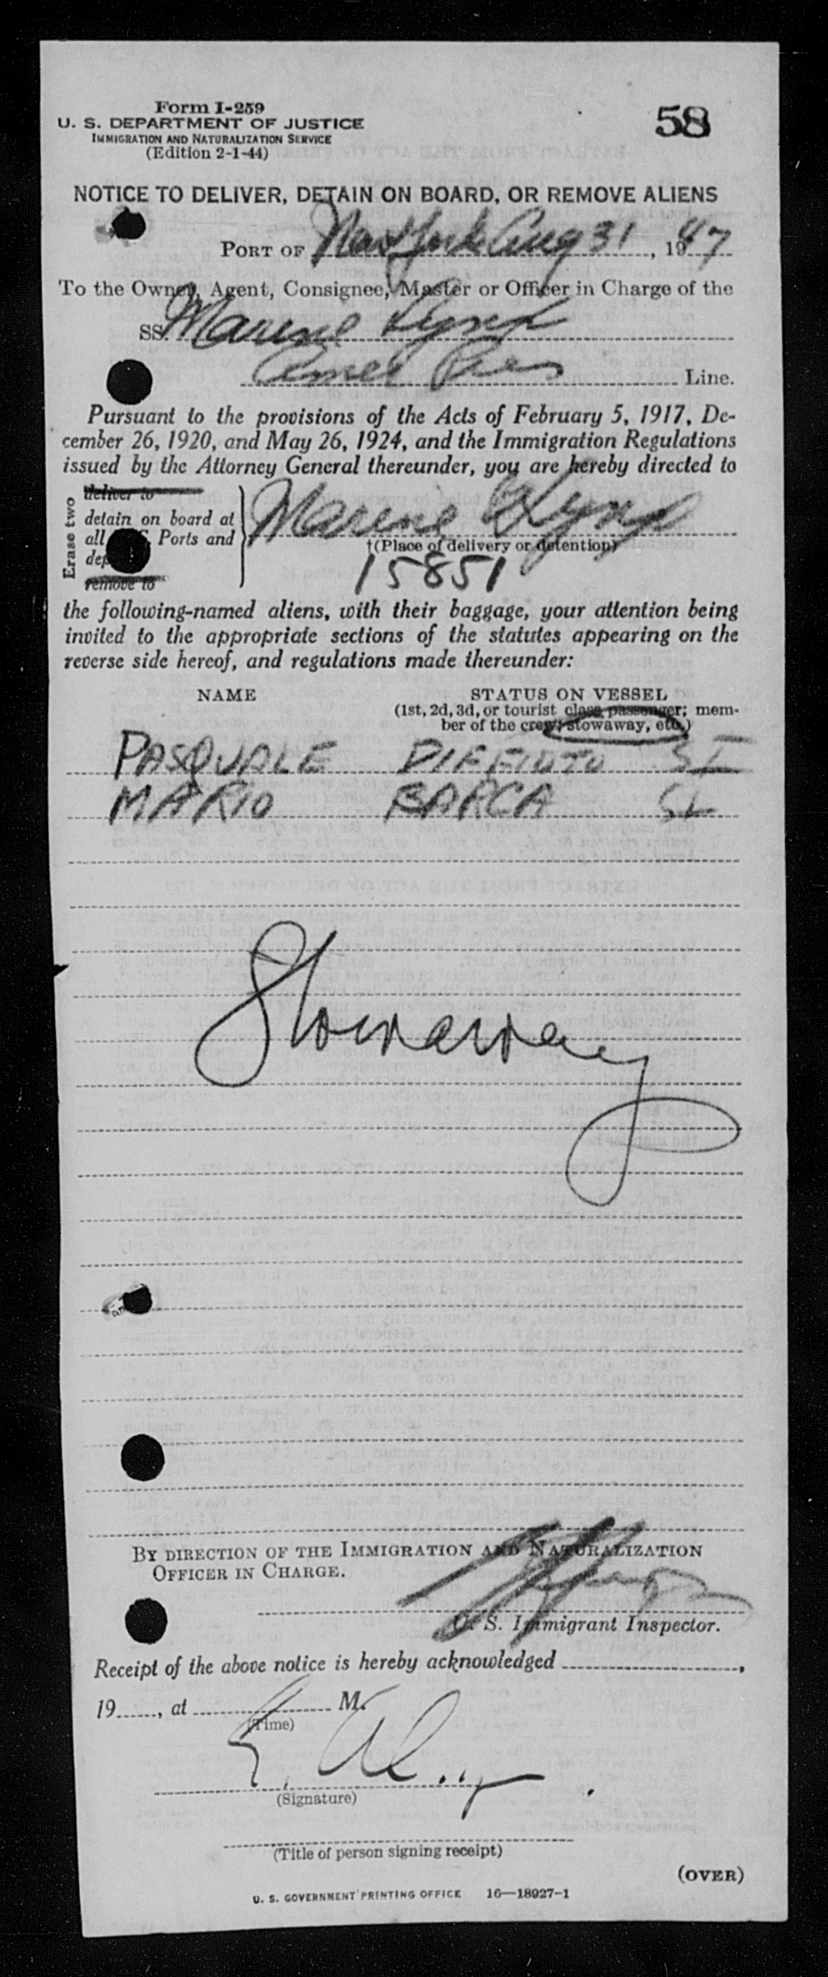 Form I-259
58
U. S. DEPARTMENT OF JUSTICE
IMMIGRATION AND NATURALIZATION SERVICE
(Edition 2-1-44)
NOTICE TO DELIVER, DETAIN ON BOARD, OR REMOVE ALIENS
PORT OF New York Aug 31, 1947
To the Owner, Agent, Consignee, Master or Officer in Charge of the
SS. Marine Lynx
Amer Pres Line.
Pursuant to the provisions of the Acts of February 5, 1917, De-
cember 26, 1920, and May 26, 1924, and the Immigration Regulations
issued by the Attorney General thereunder, you are hereby directed to
Erase two
deliver to
detain on board at
all Ports and
remove to
Marine Lynx
†(Place of delivery or detention)
15851
the following-named aliens, with their baggage, your attention being
invited to the appropriate sections of the statutes appearing on the
reverse side hereof, and regulations made thereunder:
NAME STATUS ON VESSEL
(1st, 2d, 3d, or tourist class passenger; mem-
ber of the crew; stowaway, etc.)
PASQUALE
MARIO BARCA
Stowaway
BY DIRECTION OF THE IMMIGRATION AND NATURALIZATION
OFFICER IN CHARGE.
U. S. Immigrant Inspector.
Receipt of the above notice is hereby acknowledged ,
19 , at M.
(Time)
(Signature)
(Title of person signing receipt)
(OVER)
U. S. GOVERNMENT PRINTING OFFICE 16—18927-1